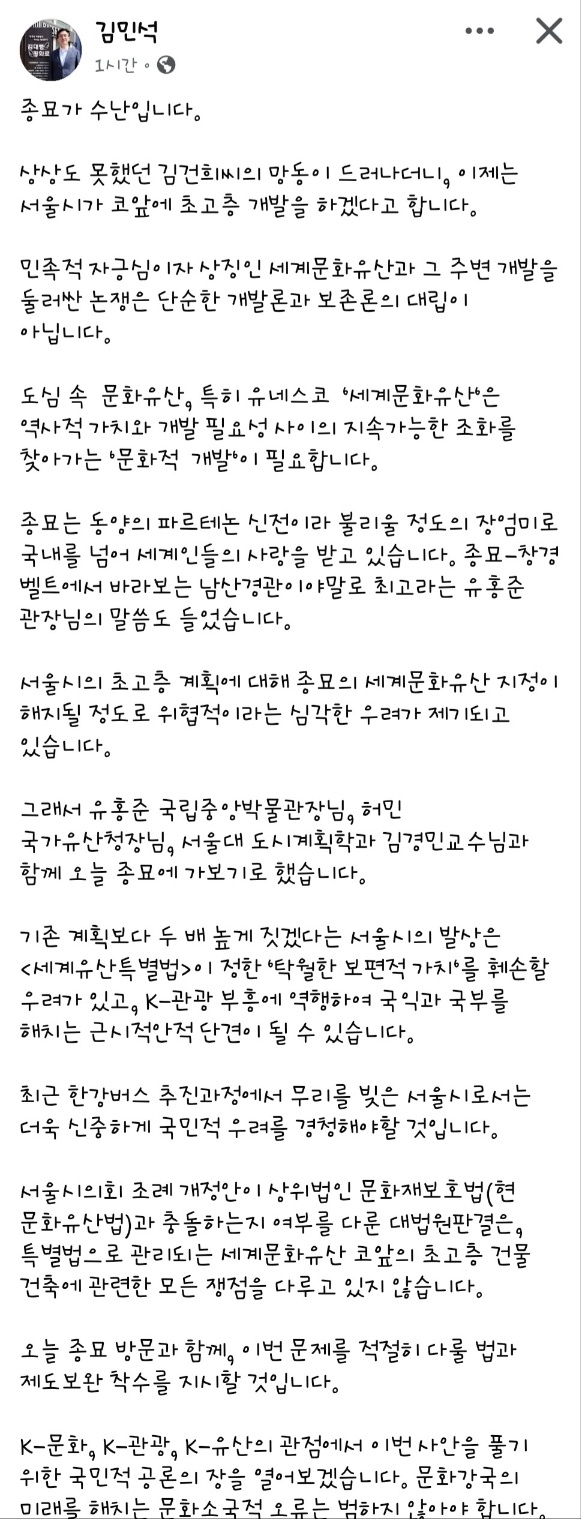 김민석
1시간
종묘가 수난입니다.
상상도 못했던 김건희씨의 망동이 드러나더니, 이제는
서울시가 코앞에 초고층 개발을 하겠다고 합니다.
민족적 자긍심이자 상징인 세계문화유산과 그 주변 개발을
둘러싼 논쟁은 단순한 개발론과 보존론의 대립이
아닙니다.
도심 속 문화유산, 특히 유네스코 '세계문화유산'은
역사적 가치와 개발 필요성 사이의 지속가능한 조화를
찾아가는 '문화적 개발'이 필요합니다.
종묘는 동양의 파르테논 신전이라 불리울 정도의 장엄미로
국내를 넘어 세계인들의 사랑을 받고 있습니다. 종묘-창경
벨트에서 바라보는 남산경관이야말로 최고라는 유홍준
관장님의 말씀도 들었습니다.
서울시의 초고층 계획에 대해 종묘의 세계문화유산 지정이
해지될 정도로 위협적이라는 심각한 우려가 제기되고
있습니다.
그래서 유홍준 국립중앙박물관장님, 허민
국가유산청장님, 서울대 도시계획학과 김경민교수님과
함께 오늘 종묘에 가보기로 했습니다.
기존 계획보다 두 배 높게 짓겠다는 서울시의 발상은
<세계유산특별법>이 정한 '탁월한 보편적 가치'를 훼손할
우려가 있고, K-관광 부흥에 역행하여 국익과 국부를
해치는 근시적안적 단견이 될 수 있습니다.
최근 한강버스 추진과정에서 무리를 빚은 서울시로서는
더욱 신중하게 국민적 우려를 경청해야할 것입니다.
서울시의회 조례 개정안이 상위법인 문화재보호법(현
문화유산법)과 충돌하는지 여부를 다룬 대법원판결은,
특별법으로 관리되는 세계문화유산 코앞의 초고층 건물
건축에 관련한 모든 쟁점을 다루고 있지 않습니다.
오늘 종묘 방문과 함께, 이번 문제를 적절히 다룰 법과
제도보완 착수를 지시할 것입니다.
K-문화, K-관광, K-유산의 관점에서 이번 사안을 풀기
위한 국민적 공론의 장을 열어보겠습니다. 문화강국의
미래를 해치는 문화소국적 오류는 범하지 않아야 합니다.